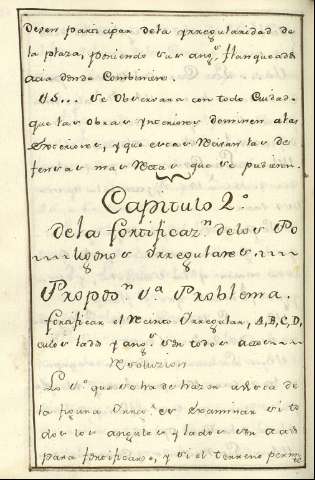 deven participar dela Yrregularidad de
la plaza, poniendo sus ang.s flanqueados
acia donde Combiniere.
Y 5... Se Observara con todo Cuidad-
que las Obras Ynteriores dominen alas
Exteriores, y que estas Miran las de
fensas mas Rectas que se pudieren.
Capitulo 2.º
dela fortificaz.n delos Po
ligonos Irregulares.
Propos.n 1.a Problema.
Fortificar el Recinto Irregular, A, B, C, D,
cuios lados y ang.s son todos
Resoluzion
Lo 1.º que se ha de hazer acerca de
la figura es Examinar si to
dos los angulos y lados son
para fortificarse, y si el terreno permite